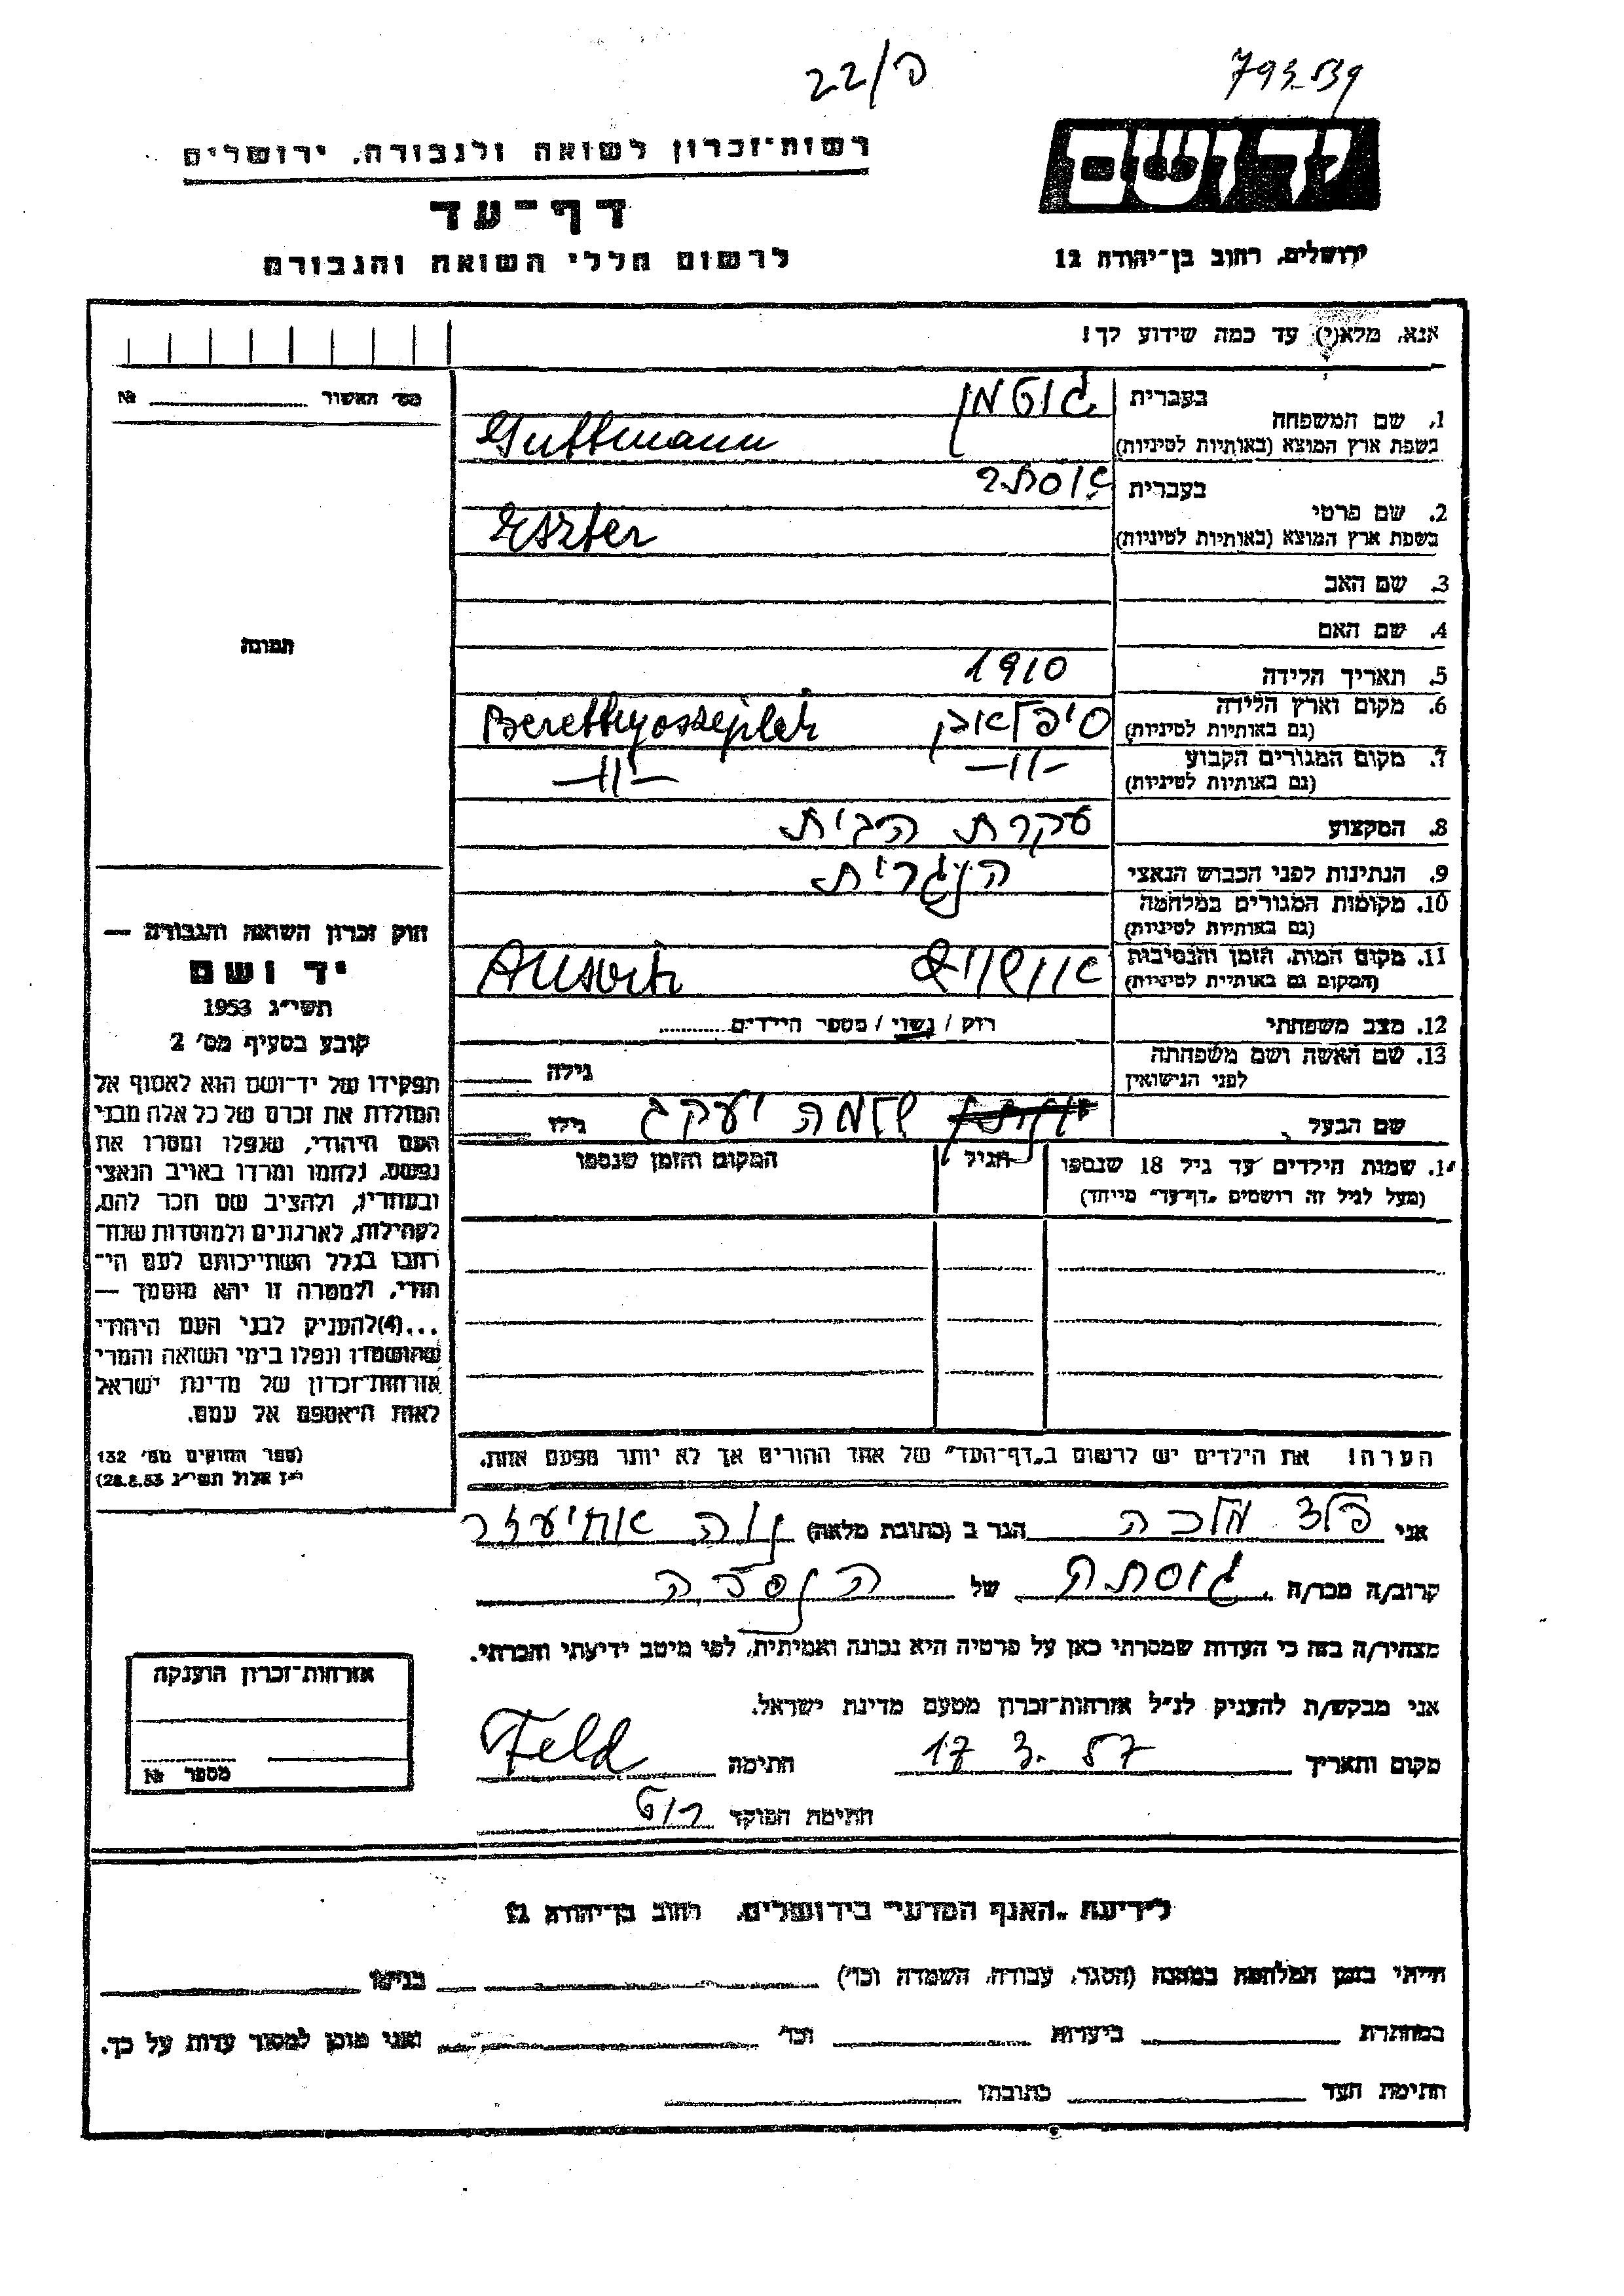 22/פ
793539
יד ושם
ירושלים, רחוב בן־יהודה 12
רשות־זכרון לשואה ולגבורה, ירושלים
דף־עד
לרשום חללי השואה והגבורה
אנא, מלא(י) עד כמה שידוע לך!
מס׳ האשור №
תמונה
1. שם המשפחה בעברית גוטמן
בשפת ארץ המוצא (באותיות לטיניות) Guttmann
2. שם פרטי בעברית אסתר
בשפת ארץ המוצא (באותיות לטיניות) Eszter
3. שם האב
4. שם האם
5. תאריך הלידה 1910
6. מקום וארץ הלידה
(גם באותיות לטיניות) Berettyoszeplak
7. מקום המגורים הקבוע —״—
(גם באותיות לטיניות) —״—
8. המקצוע עקרת הבית
9. הנתינות לפני הכבוש הנאצי הונגרית
10. מקומות המגורים במלחמה
(גם באותיות לטיניות)
11. מקום המות, הזמן והנסיבות אושוויץ
(המקום גם באותיות לטיניות)
12. מצב משפחתי רווק / נשוי / מספר הילדים
13. שם האשה ושם משפחתה
לפני הנישואין גילה
שם הבעל שלמה יעקב גילו
1. שמות הילדים עד גיל 18 שנספו הגיל המקום והזמן שנספו
(מעל לגיל זה רושמים „דף־עד״ מיוחד)
הערה! את הילדים יש לרשום ב„דף־העד״ של אחד ההורים אך לא יותר מפעם אחת.
חוק זכרון השואה והגבורה —
יד ושם
תשי״ג 1953
קובע בסעיף מס׳ 2
תפקידו של יד־ושם הוא לאסוף אל
המולדת את זכרם של כל אלה מבני
העם היהודי, שנפלו ומסרו את
נפשם, נלחמו ומרדו באויב הנאצי
ובעוזריו, ולהציב שם וזכר להם,
לקהילות, לארגונים ולמוסדות שנח־
רבו בגלל השתייכותם לעם הי־
הודי, ולמטרה זו יהא מוסמך —
...(4)להעניק לבני העם היהודי
שהושמדו ונפלו בימי השואה והמרי
אזרחות־זכרון של מדינת ישראל
לאות היאספם אל עמם.
(ספר החוקים מס׳ 132
י״ז אלול תשי״ג 28.8.53)
אני פלד מלכה הגר ב (כתובת מלאה) נוה אחיעזר
קרוב/ה מכר/ה גיסתה של הנספה
מצהיר/ה בזה כי העדות שמסרתי כאן על פרטיה היא נכונה ואמיתית, לפי מיטב ידיעתי והכרתי.
אני מבקש/ת להעניק לנ״ל אזרחות־זכרון מטעם מדינת ישראל.
מקום ותאריך 17 3. 57 חתימה Feld
חתימת הפוקד
אזרחות־זכרון הוענקה
מספר №
לידיעת „האגף המדעי״ בירושלים, רחוב בן־יהודה 12
הייתי בזמן המלחמה במחנה (הסגר, עבודה, השמדה וכו׳) בגיטו
במחתרת ביערות וכו׳ ואני מוכן למסור עדות על כך.
חתימת העד כתובתו